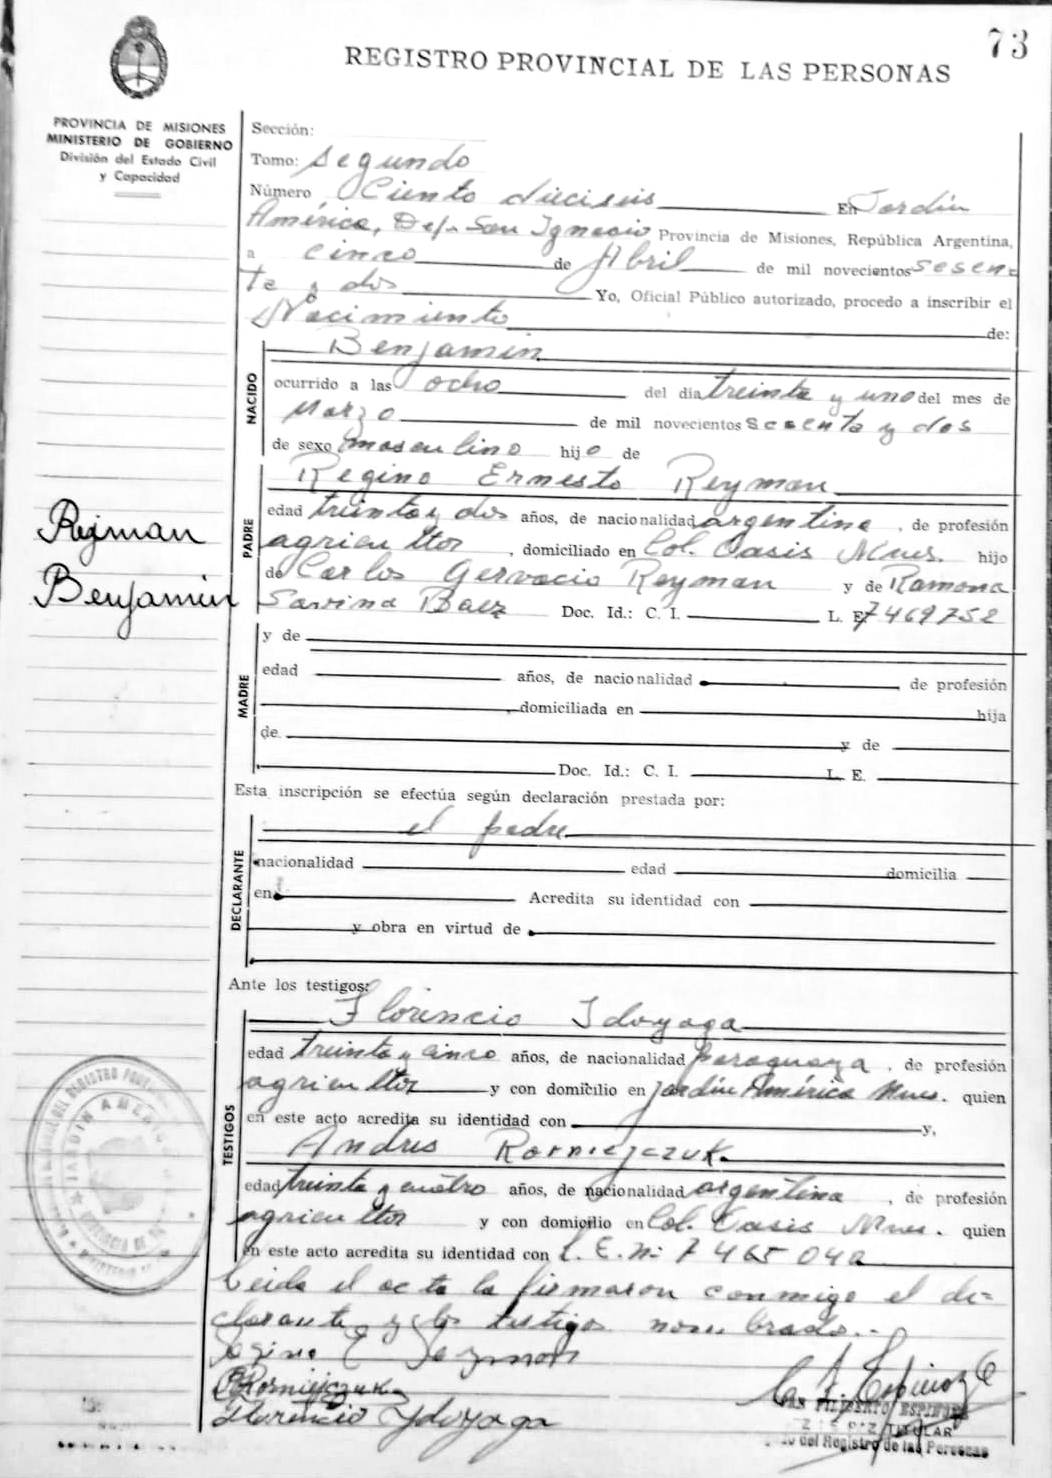 73
REGISTRO PROVINCIAL DE LAS PERSONAS
PROVINCIA DE MISIONES
MINISTERIO DE GOBIERNO
División del Estado Civil
y Capacidad
Sección:
Tomo: Segundo
Número Ciento dieciseis En Jardín
América, Dep. San Ignacio Provincia de Misiones, República Argentina,
a cinco de Abril de mil novecientos sesen-
ta y dos Yo, Oficial Público autorizado, procedo a inscribir el
Nacimiento de:
NACIDO
Benjamin
ocurrido a las ocho del día treinta y uno del mes de
Marzo de mil novecientos sesenta y dos
de sexo masculino hijo de
PADRE
Regino Ernesto Reyman
edad treinta y dos años, de nacionalidad argentina, de profesión
agricultor, domiciliado en Col. Oasis Mnes. hijo
de Carlos Gervacio Reyman y de Ramona
Savina Baez Doc. Id.: C. I. L. E. 7469752
Rejman
Benjamin
MADRE
y de
edad años, de nacionalidad, de profesión
domiciliada en hija
de y de
Doc. Id.: C. I. L. E.
Esta inscripción se efectúa según declaración prestada por:
DECLARANTE
el padre
nacionalidad edad domicilia
en Acredita su identidad con
y obra en virtud de
Ante los testigos:
TESTIGOS
Florencio Idoyaga
edad treinta y cinco años, de nacionalidad paraguaya, de profesión
agricultor y con domicilio en Jardín América Mnes. quien
en este acto acredita su identidad con y,
Andres Korniejczuk
edad treinta y cuatro años, de nacionalidad argentina, de profesión
agricultor y con domicilio en Col. Oasis Mnes. quien
en este acto acredita su identidad con L. E. Nº 7465
Leida el acta la firmaron conmigo el de-
clarante y los testigos nombrado.-
Regino E Reymon
Korniejczuk
Florencio Ydoyaga
FILIBERTO ESPINOZA
TITULAR
del Registro de las Personas
JARDIN AMERICA